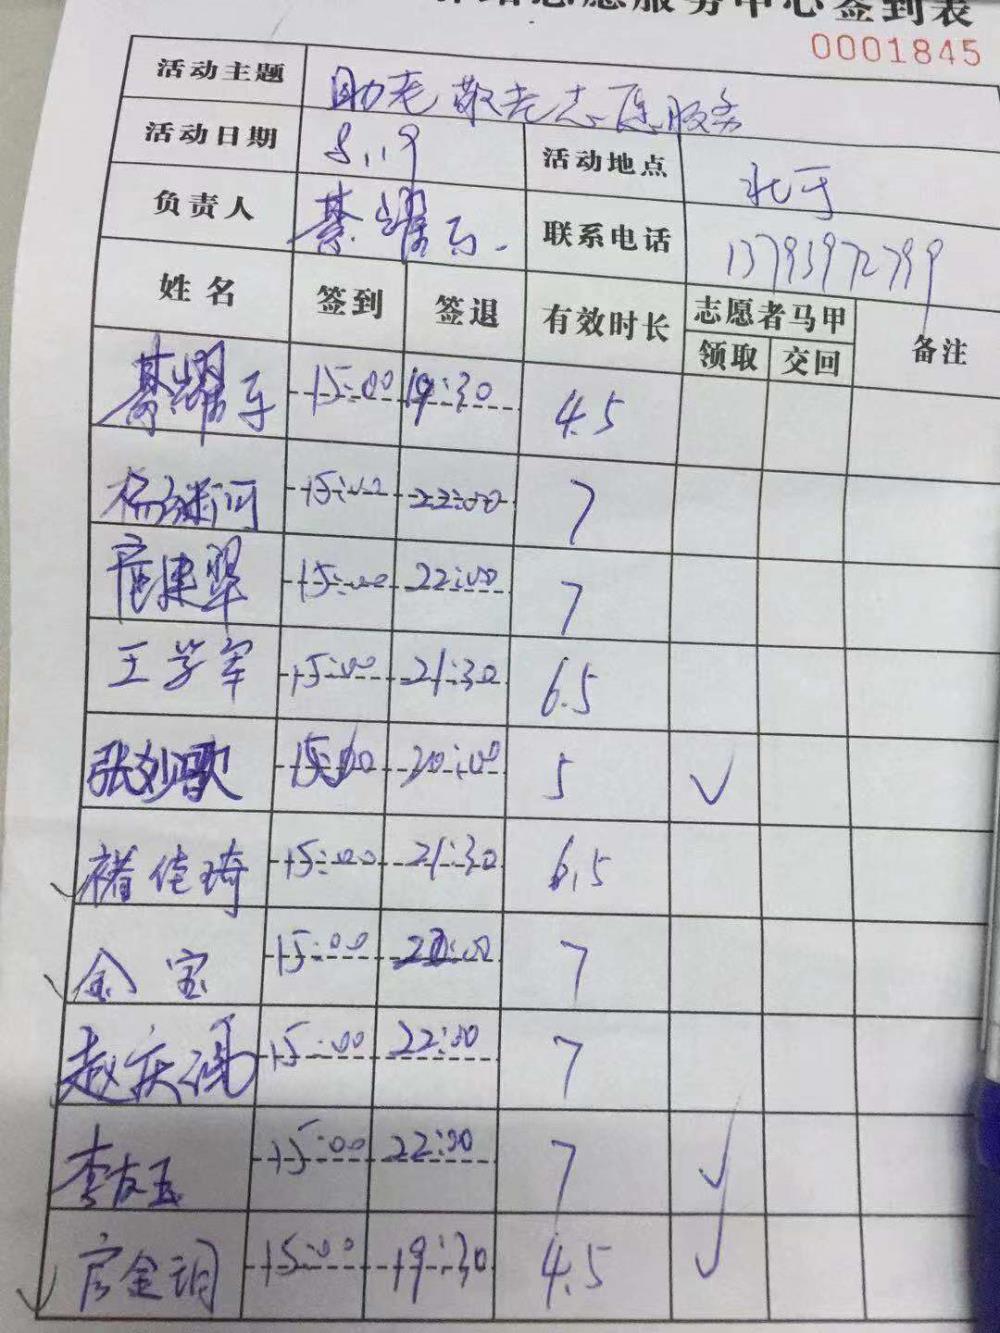 志愿服务中心签到表
0001845
活动主题 助老敬老志愿服务
活动日期 8.19 活动地点
负责人 綦耀 联系电话 13793972799
姓名 签到 签退 有效时长 志愿者马甲 备注
领取 交回
綦耀 15:00 19:30 4.5
15:00 22:00 7
15:00 22:00 7
王学军 15:00 21:30 6.5
张 歌 15:00 20:00 5 ✓
✓ 褚佳琦 15:00 21:30 6.5
✓ 金宝 15:00 22:00 7
赵庆 15:00 22:00 7
李友玉 15:00 22:00 7 ✓
✓ 官金 15:00 19:30 4.5 ✓